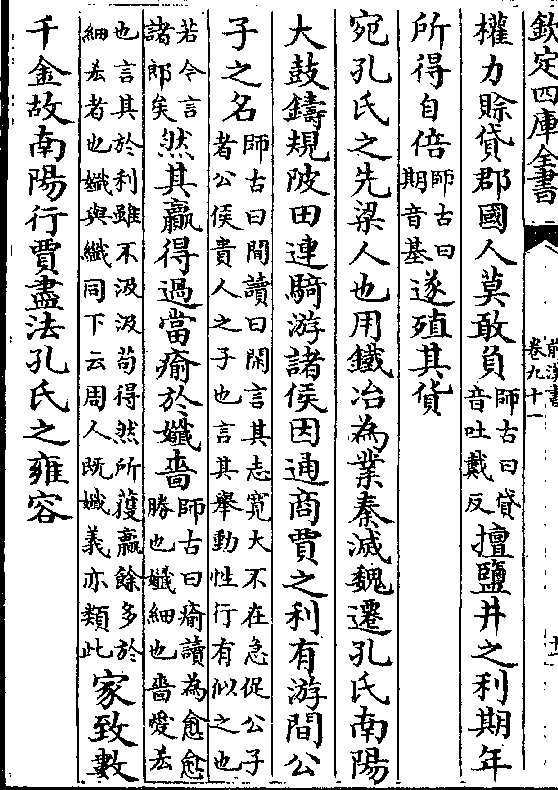 欽定四庫全書
前漢書
卷九十一
權力賒貸郡國人莫敢負師古曰貸音吐戴反擅鹽井之利期年
所得自倍師古曰期音基遂殖其貨
宛孔氏之先梁人也用鐵冶為業秦滅魏遷孔氏南陽
大鼓鑄規陂田連騎游諸侯因通商賈之利有游間公
子之名師古曰間讀曰閑言其志寬大不在急促公子者公侯貴人之子也言其舉動性行有似之也
若令言諸郎矣然其贏得過當瘉於孅嗇師古曰瘉讀為愈愈勝也孅細也嗇愛吝
也言其於利雖不汲汲苟得然所獲贏餘多於細吝者也孅與纖同下云周人既孅義亦類此家致數
千金故南陽行賈盡法孔氏之雍容